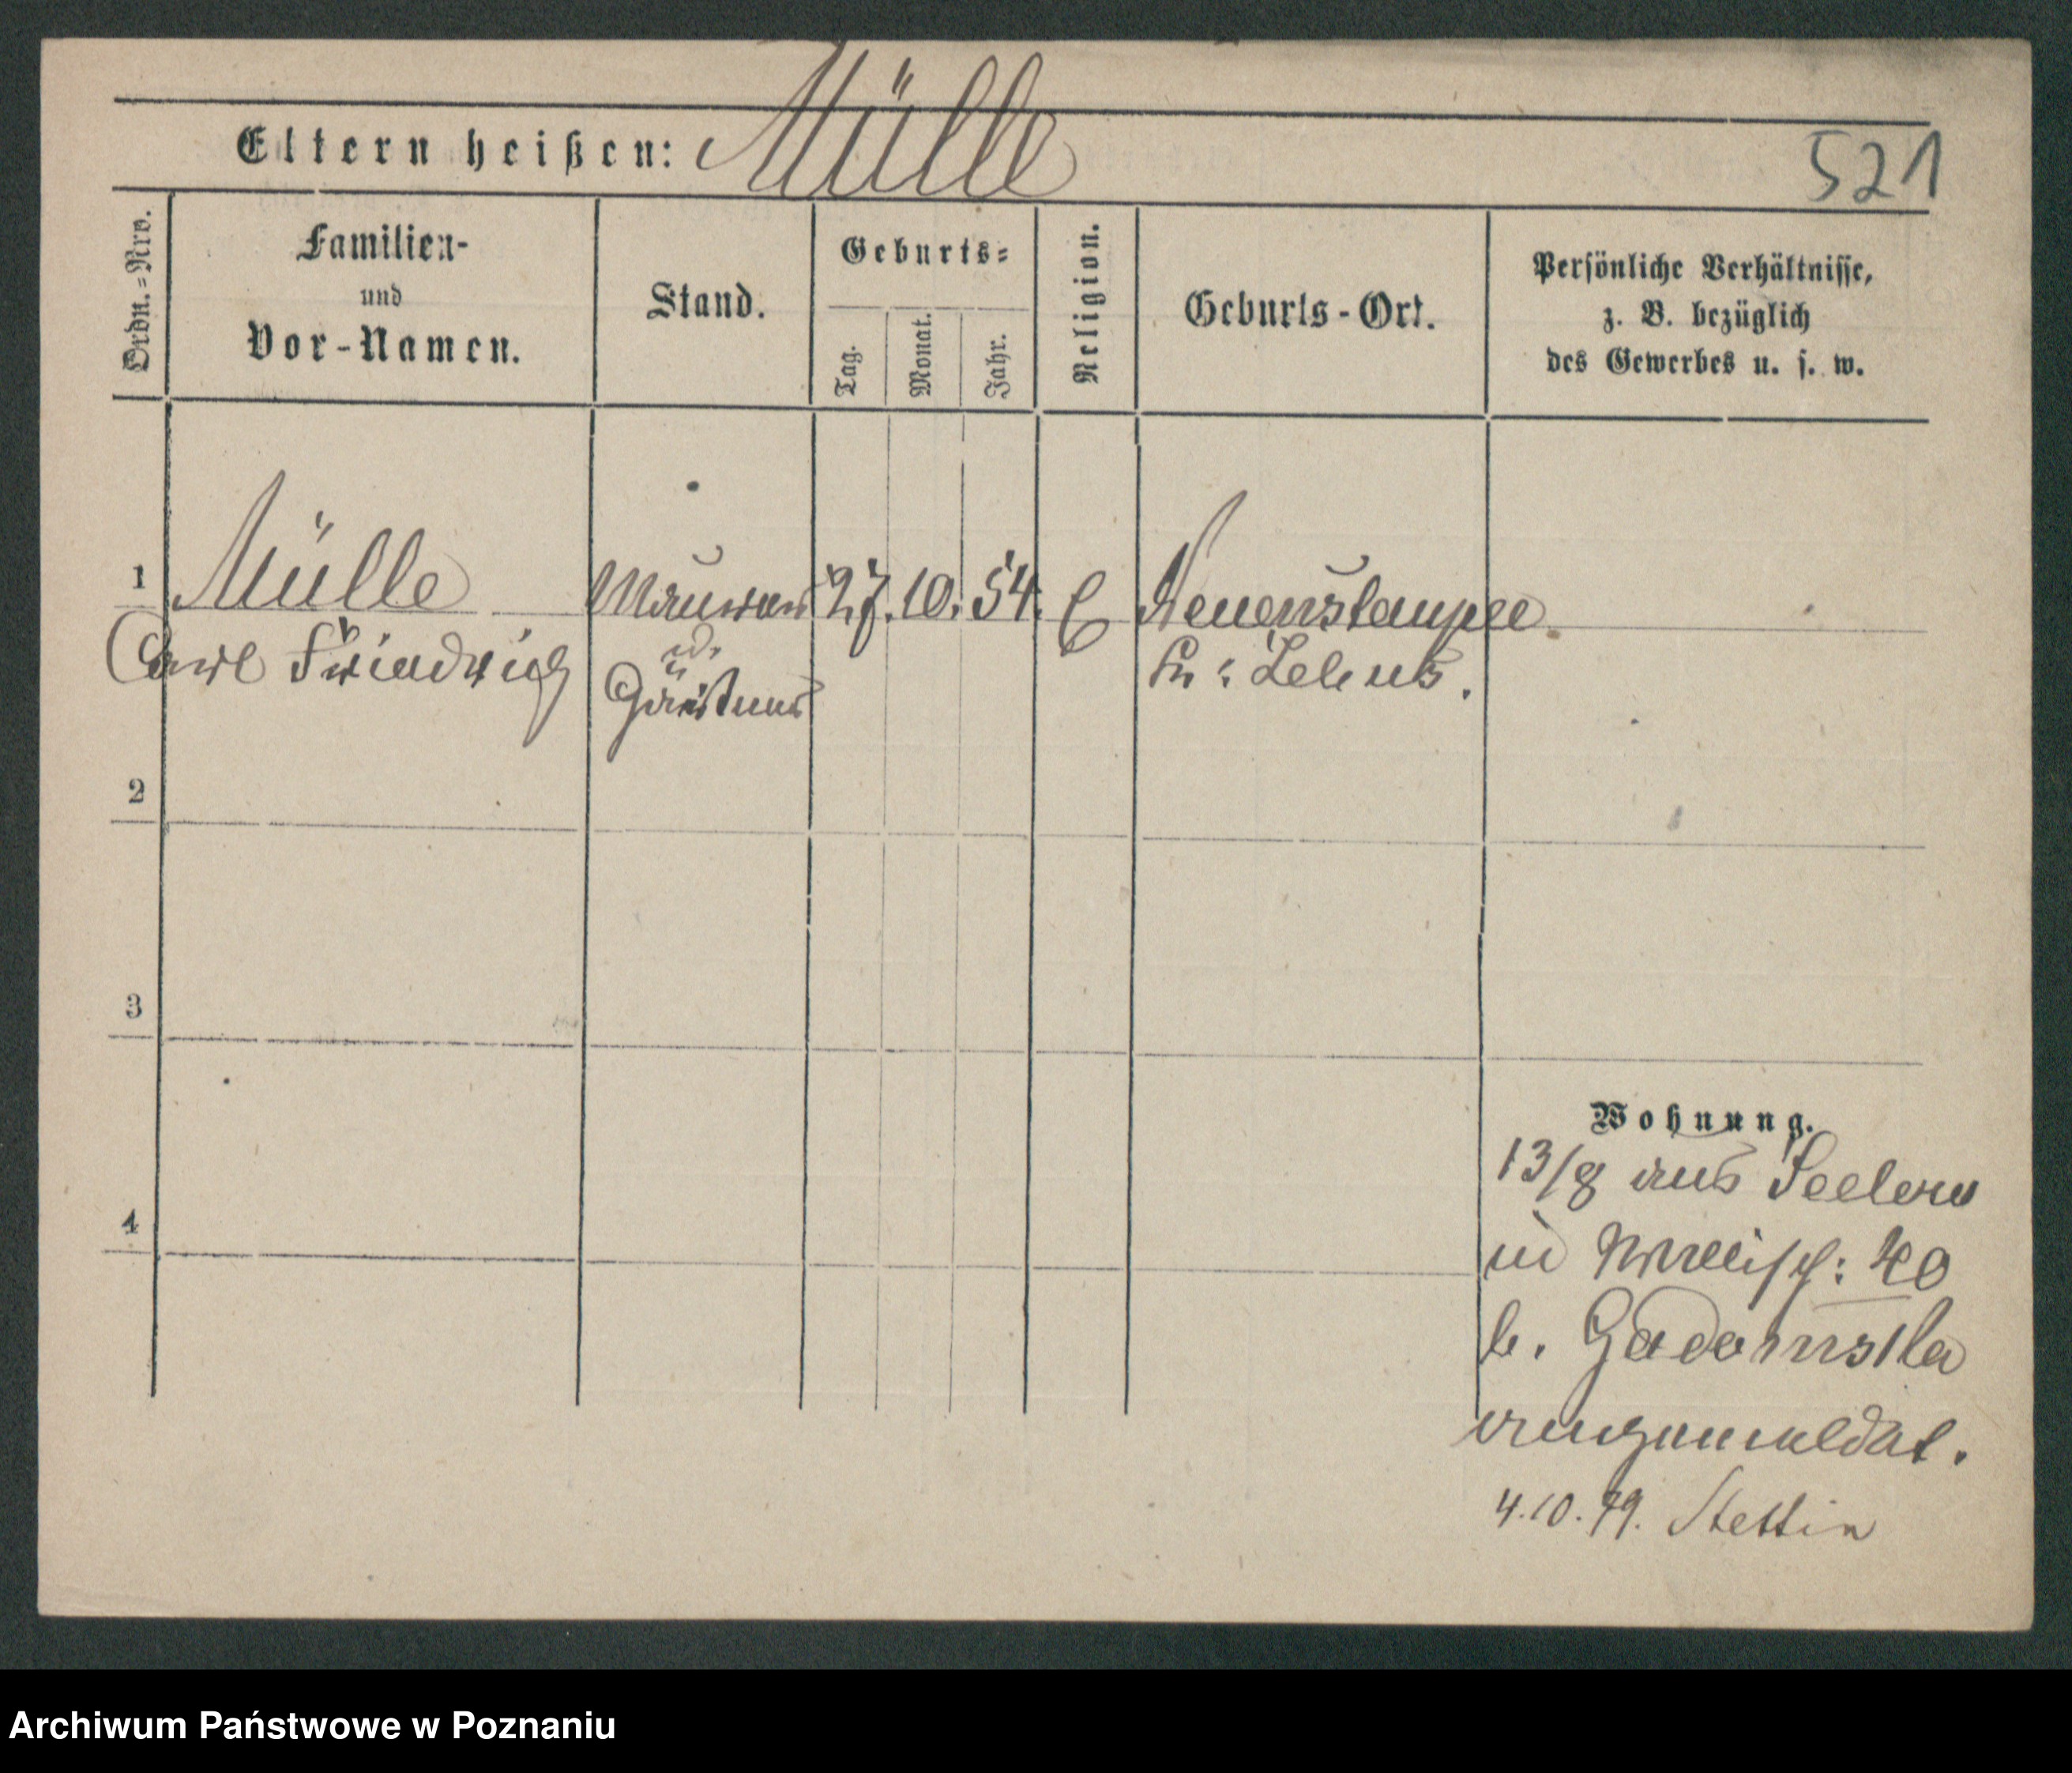 Eltern heißen: Mülle
521
Ordn.=Nro.
Familien-
und
Vor-Namen.
Stand.
Geburts=
Tag.
Monat.
Jahr.
Religion.
Geburts-Ort.
Persönliche Verhältnisse,
z. B. bezüglich
des Gewerbes u. s. w.
1 Mülle Maurer 27. 10. 54.
Carl Friedrich
Kr: Lebus.
2
3
4
Wohnung.
13/8 aus
in Wallisch: 40
b. Gadomska
angemeldet.
4.10.79. Stettin
Archiwum Państwowe w Poznaniu